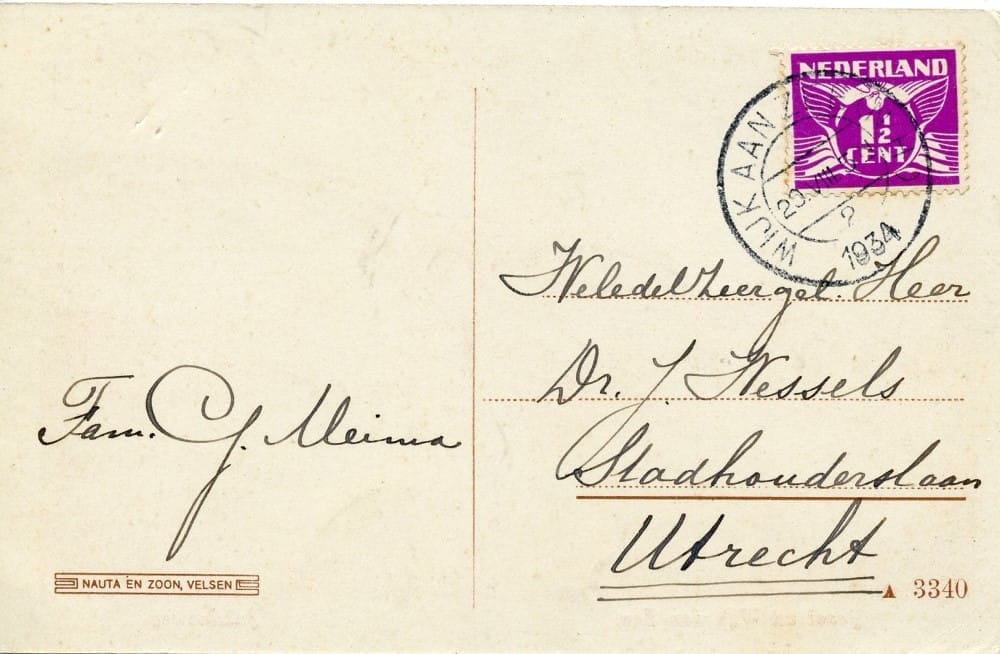 NEDERLAND
1½
CENT
WIJK AAN Z
29.VIII
2
1934
WelEdelZeergel. Heer
Dr. J. Wessels
Stadhouderslaan
Utrecht
Fam. G. Meima
NAUTA EN ZOON, VELSEN
▲ 3340